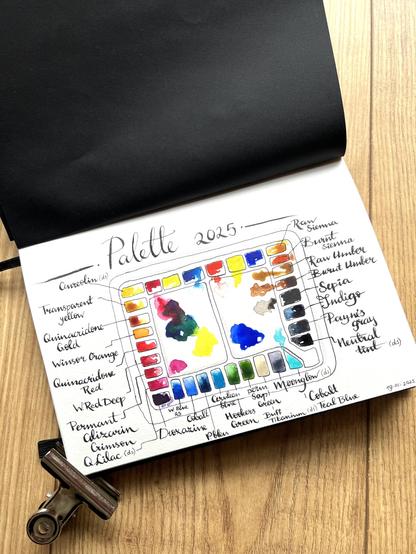 Palette 2025.
Aureolin (ds)
Transparent
yellow
Quinacridone
Gold
Winsor Orange
Quinacridone
Red
W Red Deep
Permanent
Alizarin
Crimson
Q Lilac (ds)
Dioxazine
W Blue
Cobalt
Cerulean
blue
Hookers
Green
perm
Sap
Green
Buff
Titanium (ds)
Moonglow (ds)
Cobalt
Teal Blue
Raw
Sienna
Burnt
Sienna
Raw Umber
Burnt Umber
Sepia
Indigo
Payne's
gray
Neutral
tint (ds)